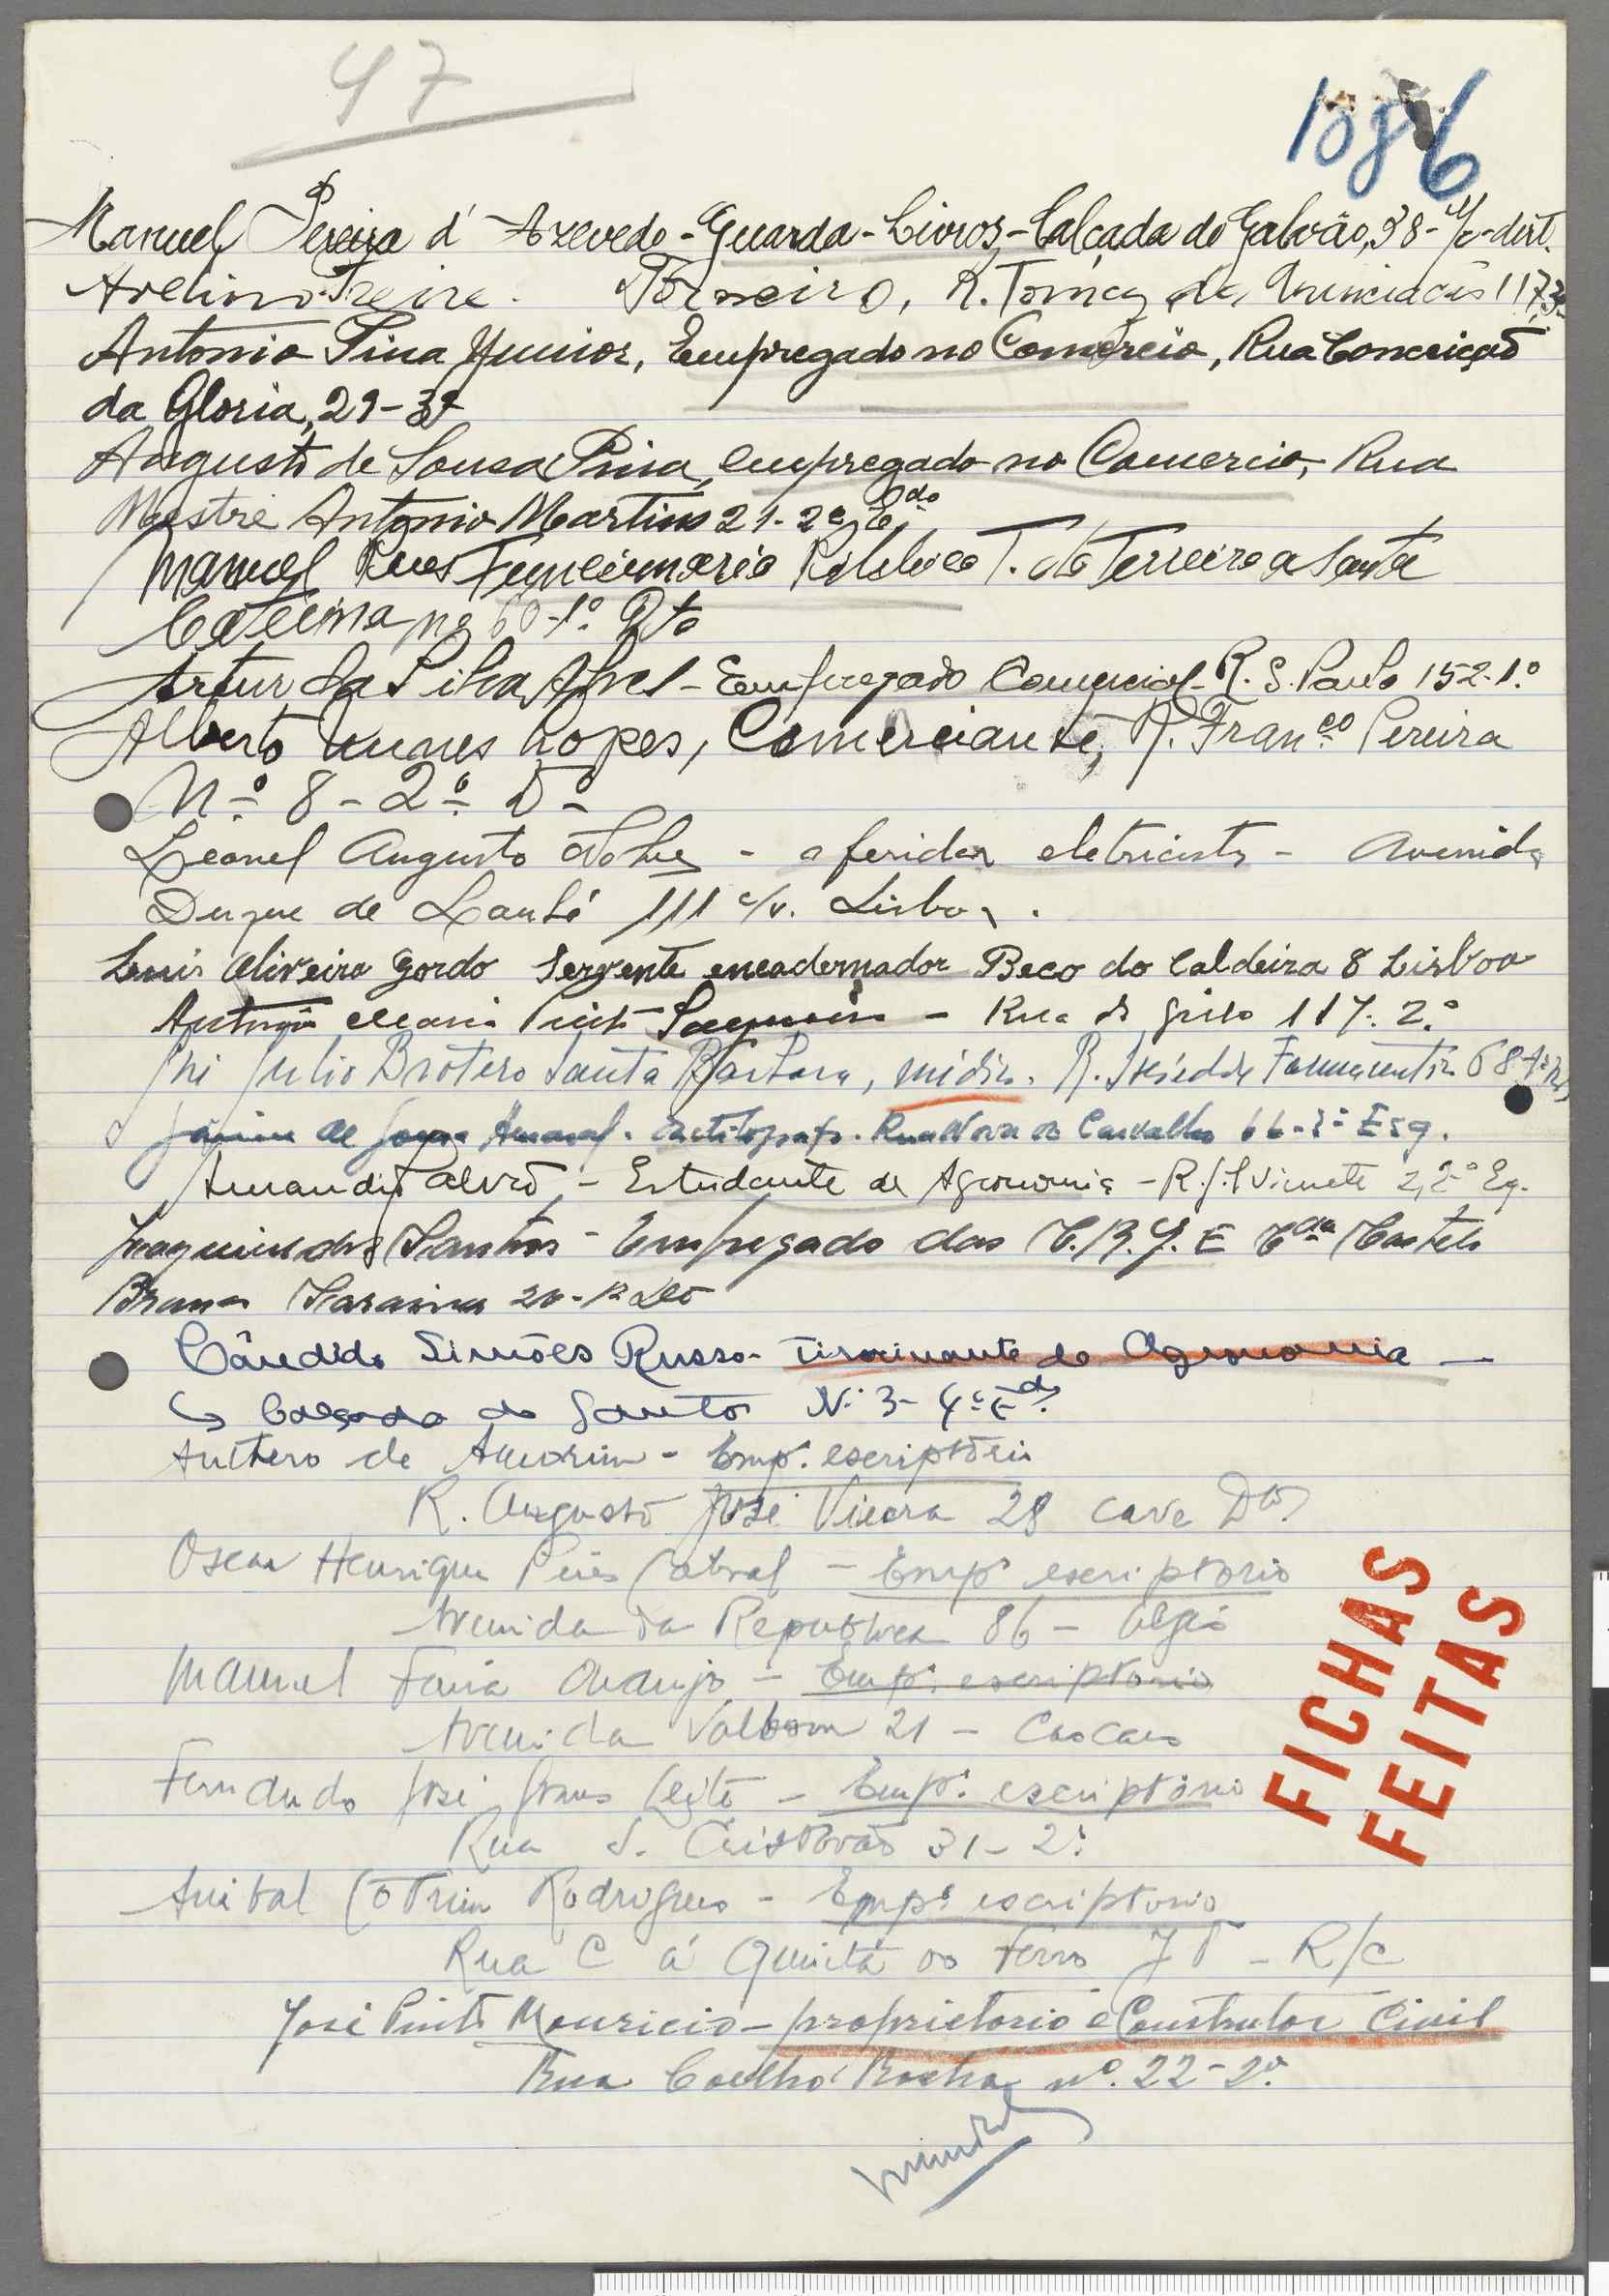 47
1086
Manuel Pereira d'Azevedo - Guarda-Livros - Calçada do Galvão, 38 - r/c - dirt.
Avelino Freire. Torneiro, R. Tomaz da Anunciação 117 3º
Antonio Pina Junior, Empregado no Comércio, Rua Conceição
da Gloria, 29-3º
Augusto de Sousa Pina, empregado no Comercio, Rua
Mestre Antonio Martins 21-2º E.do
Manuel Pires Funcionario Publico T. do Terreiro a Santa
Catarina nº 60-1º Dto
Artur da Silva Abel - Empregado Comercial - R. S. Paulo 152-1.º
Alberto Nunes Lopes, Comerciante, R. Fran.co Pereira
Nº 8-2º Dº
Leonel Augusto - aferidor eletricista - Avenida
Duque de Loulé 111 c/v. Lisboa.
Luis Oliveira Gordo Servente encadernador Beco do Caldeira 8 Lisboa
Antonio Maria Pinto - Rua do Grilo 117-2.º
Julio Brotero Santa Barbara, médico. R.
Amaral. dactilografo. Rua Nova do Carvalho 66-3º Esq.
Amandio - Estudante de Agronomia - R. S. Vicente 2, 2º Eq.
Joaquim dos Santos - Empregado das C.R.G.E Castelo
Branco Saraiva 20-
Cândido Simões Russo - Tirocinante de Agronomia -
↳ Calçada do Santos Nº 3-4º E.do
Anthero de Amorim - Emp.º escriptório
R. Augusto José Vieira 28 cave Dto.
Oscar Henrique Pires Cabral - Empº escriptorio
Avenida da Republica 86 - Algés
Manuel Faria Araujo - Emp.º escriptorio
Avenida Valbom 21 - Cascaes
Fernando José Leite - Emp.º escriptório
Rua S. Cristovão 31-2º
Anibal Cotrim Rodrigues - Empº escriptorio
Rua C á Quinta do Ferro J T - R/c
José Pinto Mauricio - proprietario e Construtor Civil
Rua Coelho Rocha nº. 22-2º.
FICHAS
FEITAS